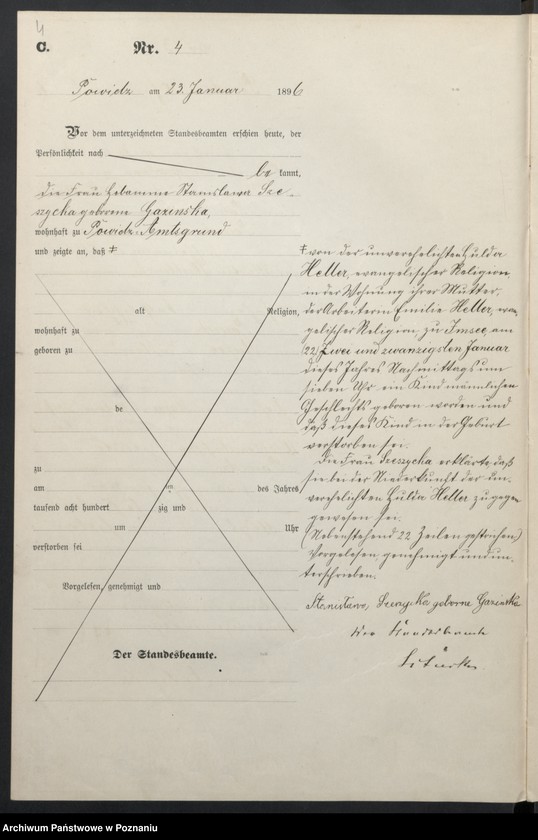 4
C.
Nr. 4
Powidz am 23. Januar 1896
Vor dem unterzeichneten Standesbeamten erschien heute, der
Persönlichkeit nach
be kannt,
die Frau Hebamme Stanislawa Sze-
szycha geborene Gazinska,
wohnhaft zu Powidz Amtsgrund
und zeigte an, daß ‡
alt Religion,
wohnhaft zu
geboren zu
de
zu
am ten des Jahres
tausend acht hundert zig und
um Uhr
verstorben sei
Vorgelesen, genehmigt und
Der Standesbeamte.
‡ von der unverehelichten Hulda
Heller, evangelischer Religion
in der Wohnung ihrer Mutter,
der Arbeiterin Emilie Heller, evan-
gelischer Religion, zu Imsee, am
(22) Zwei und zwanzigsten Januar
dieses Jahres Nachmittags um
sieben Uhr ein Kind männlichen
Geschlechts geboren worden und
daß dieses Kind in der Geburt
verstorben sei.
Die Frau Szeszycha erklärte, daß
sie bei der Niederkunft der un-
verehelichten Hulda Heller zugegen
gewesen sei.
(Nebenstehend 22 Zeilen gestrichen)
Vorgelesen, genehmigt und un-
terschrieben.
Stanislawa geborne Gazinska
Der Standesbeamte
Archiwum Państwowe w Poznaniu